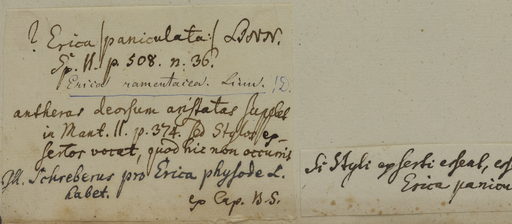 ? Erica /paniculata:/ LINN.
Sp. II. p. 508. n. 36.
Erica ramentacea. Linn.
antheras deorsum aristatas supplet
in Mant. II. p. 374. sed Stylos ex-
sertos vocat, quod hic non occurrit
Schreberus pro Erica physode L.
habet.
ex Cap. B. S.
Si Styli exserti essent, ess
Erica panicu